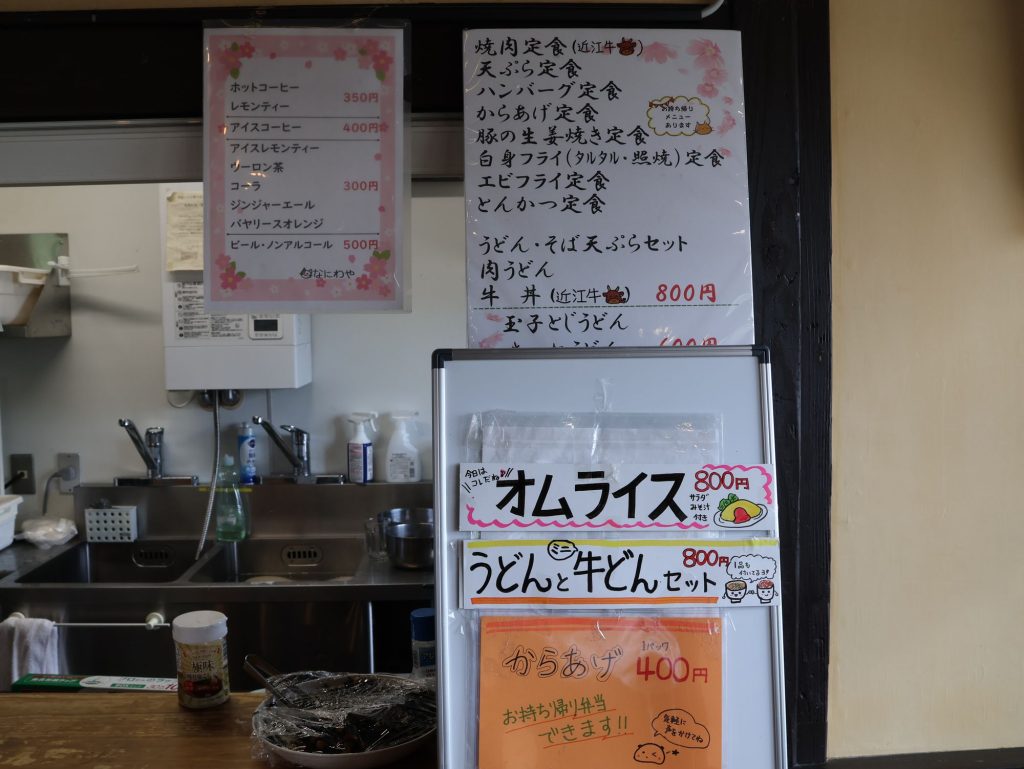 ホットコーヒー
レモンティー
350円
アイスコーヒー 400円
アイスレモンティー
ウーロン茶
コーラ 300円
ジンジャーエール
バヤリースオレンジ
ビール・ノンアルコール 500円
なにわや
焼肉定食(近江牛)
天ぷら定食
ハンバーグ定食
からあげ定食
豚の生姜焼き定食
白身フライ(タルタル・照焼)定食
エビフライ定食
とんかつ定食
お持ち帰り
メニュー
あります
うどん・そば天ぷらセット
肉うどん
牛丼(近江牛) 800円
玉子とじうどん
今日は
コレだね
オムライス 800円
サラダ
みそ汁
付き
うどんとミニ牛どんセット 800円
1品も
付いてるョ!
からあげ 1パック 400円
お持ち帰り弁当
できます!!
気軽に
声をかけてね
極味